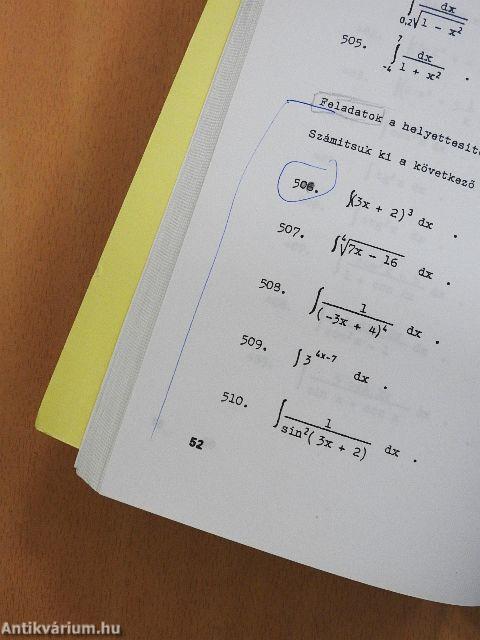 ∫ dx / √(1 - x²)
0,2
505. ∫ dx / (1 + x²) .
7
-4
Feladatok a
Számitsuk ki a következő
506. ∫(3x + 2)³ dx .
507. ∫ ⁴√(7x - 16) dx .
508. ∫ 1 / (-3x + 4)⁴ dx .
509. ∫ 3⁴ˣ⁻⁷ dx .
510. ∫ 1 / sin²(3x + 2) dx .
52
Antikvárium.hu